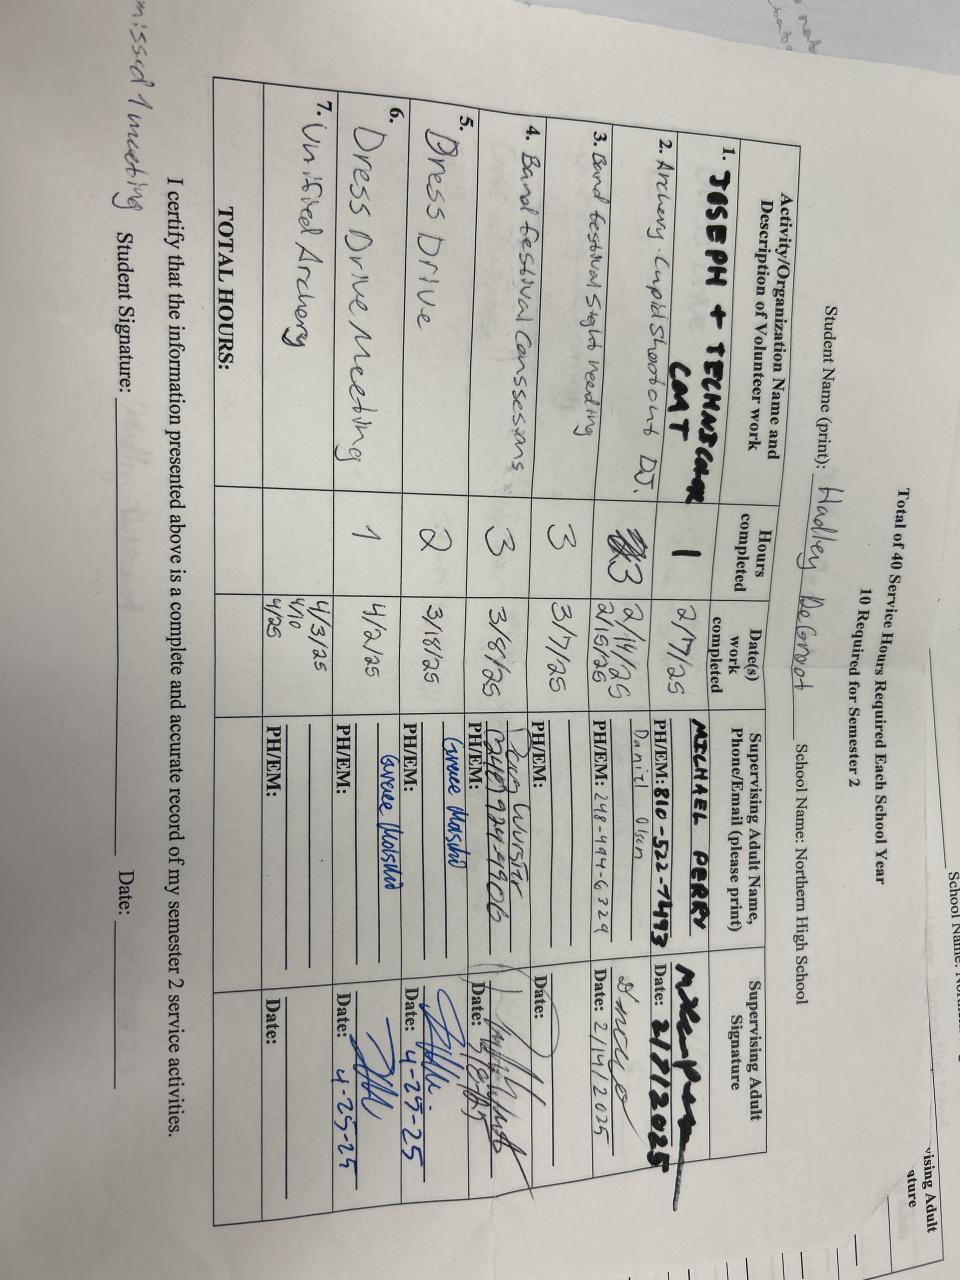 Total of 40 Service Hours Required Each School Year
10 Required for Semester 2
Student Name (print): Hadley DeGroot School Name: Northern High School
Activity/Organization Name and Description of Volunteer work
Hours completed
Date(s) work completed
Supervising Adult Name, Phone/Email (please print)
Supervising Adult Signature
1. JOSEPH + TECHNICOLOR COAT
1
2/7/25
MICHAEL PERRY
PH/EM: 810-522-7493
Date: 2/7/2025
2. Archery - Cupid Shootout DJ.
3
2/14/25
2/15/25
Daniel Olsen
PH/EM: 248-494-6329
Date: 2/14/2025
3. Band festival Sight reading
3
3/7/25
PH/EM:
Date:
4. Band festival Conssesions
3
3/8/25
Doug Wurster
PH/EM:
Date:
5. Dress Drive
2
3/18/25
PH/EM:
Date: 4-25-25
6. Dress Drive Meeting
1
4/2/25
PH/EM:
Date: 4-25-25
7. Unified Archery
4/3/25
4/10
4/25
PH/EM:
Date:
TOTAL HOURS:
I certify that the information presented above is a complete and accurate record of my semester 2 service activities.
missed 1 meeting Student Signature: Date:
School Name:
vising Adult
ature